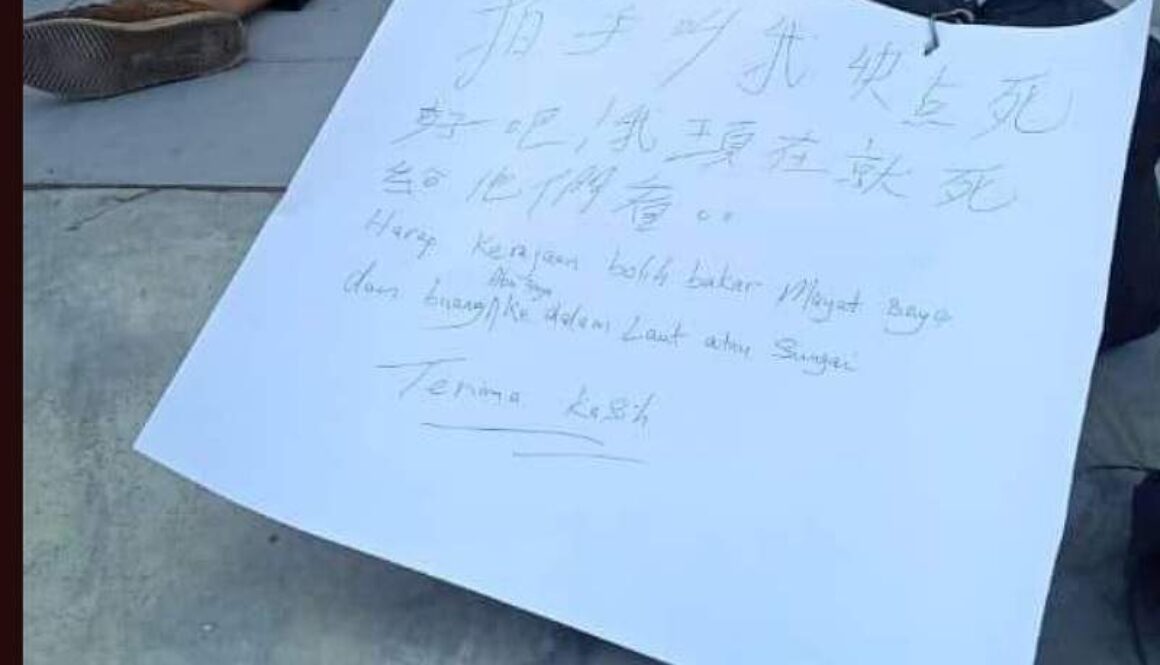 拍手叫我快点死
好吧!我現在就死
給他們看..
Harap Kerajaan bolih bakar Mayat saya
Abu saya
dan buang Ke dalam Laut atau Sungai
Terima kasih